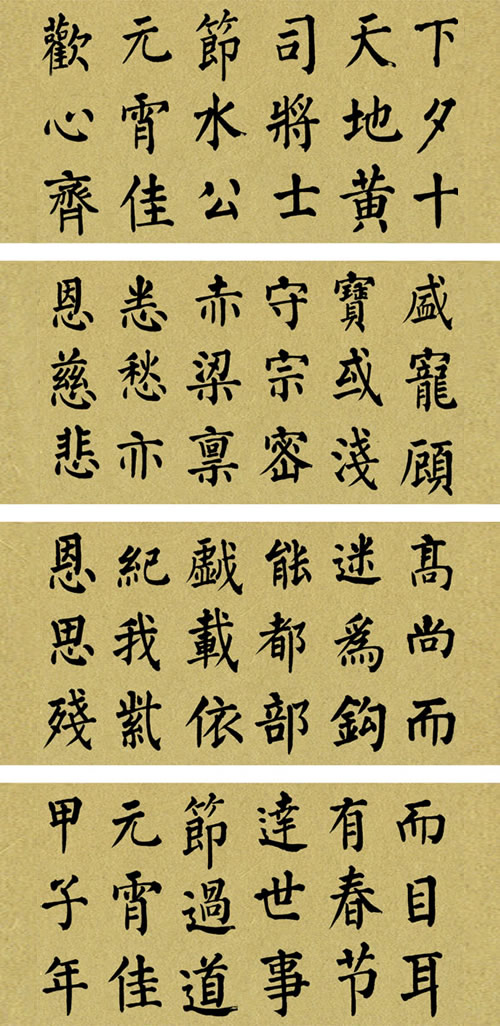 歡心齊
元宵佳
節水公
司將士
天地黄
下夕十
恩慈悲
愁亦
赤梁稟
守宗密
寶或淺
盛寵顧
恩思殘
紀我
戱載依
能都部
迷爲鈎
髙尚而
甲子年
元宵佳
節過道
達世事
有春节
而目耳